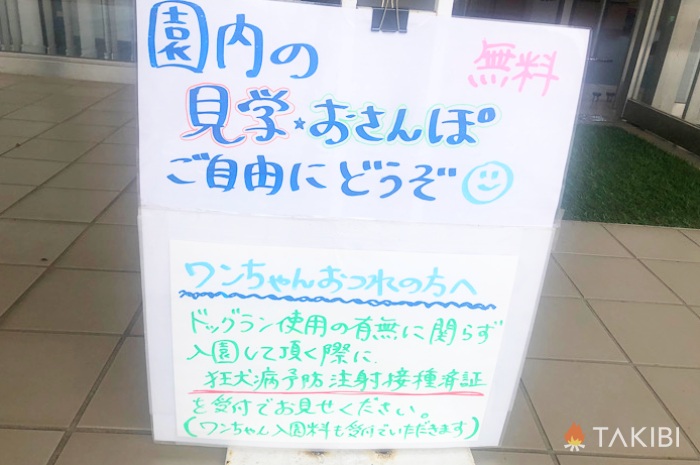 園内の
無料
見学☆おさんぽ
ご自由にどうぞ
ワンちゃんおつれの方へ
ドッグラン使用の有無に関らず
入園して頂く際に、
狂犬病予防注射接種済証
を受付でお見せください。
(ワンちゃん入園料も受付でいただきます)
TAKIBI